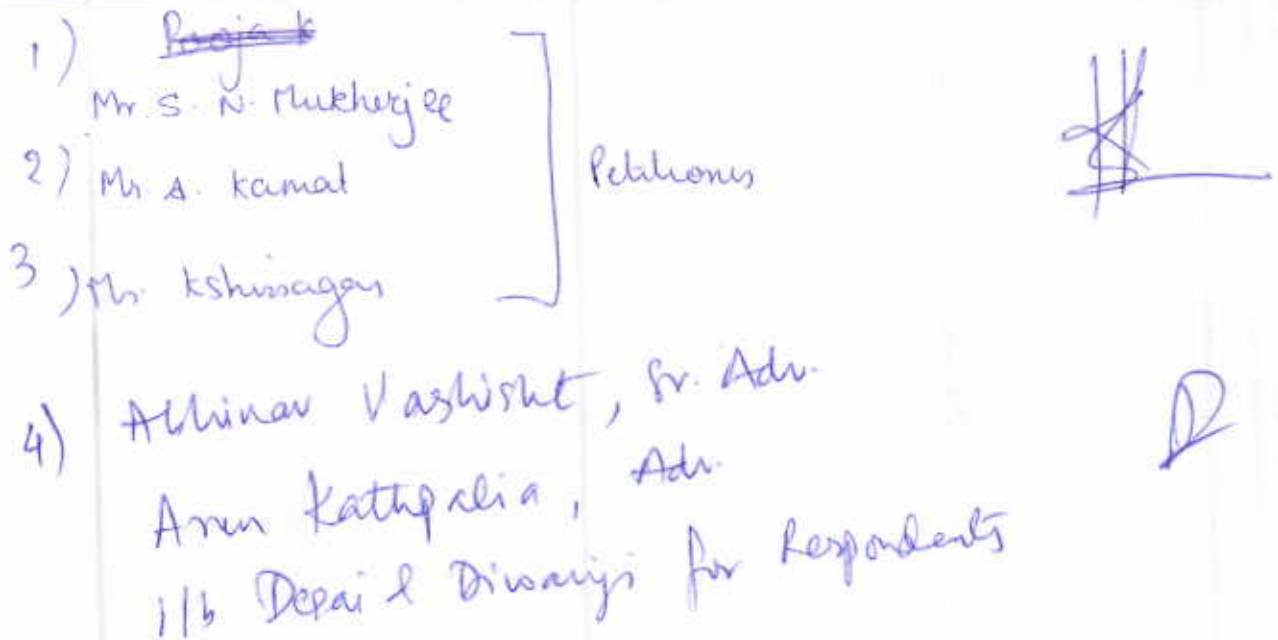 1) Pooja K
Mr. S. N. Mukherjee
2) Mr A. Kamat
3) Mr. Kshirsagar
Petitioners
4) Abhinav Vashisht, Sr. Adv.
Arun Kathpalia, Adv.
i/b Desai & Diwanji for Respondents